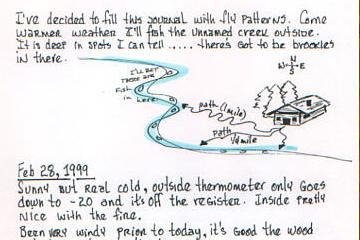 I've decided to fill this journal with fly patterns. Come
warmer weather I'll fish the unnamed creek outside.
It is deep in spots I can tell ..... there's got to be brookies
in there.
N
W E
S
I'LL BET
THERE ARE
Fish
in here.
path (1mile)
path
1/4 mile
Feb 28, 1999
Sunny but real cold, outside thermometer only goes
down to -20 and it's off the register. Inside pretty
nice with the fire.
Been very windy prior to today, it's good the wood